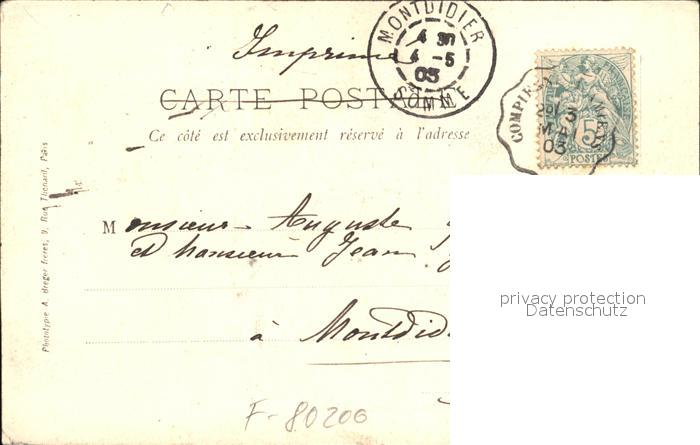 Imprimé
MONTDIDIER
4 30
4 -5
03
SOMME
CARTE POSTALE
Ce côté est exclusivement réservé à l'adresse
COMPIEGNE
3
MAI
03
5
POSTES
Phototypie A. Breger frères, 9, Rue Thénard, Paris
Monsieur Auguste
et Monsieur Jean
à Montdid
privacy protection
Datenschutz
F-80200